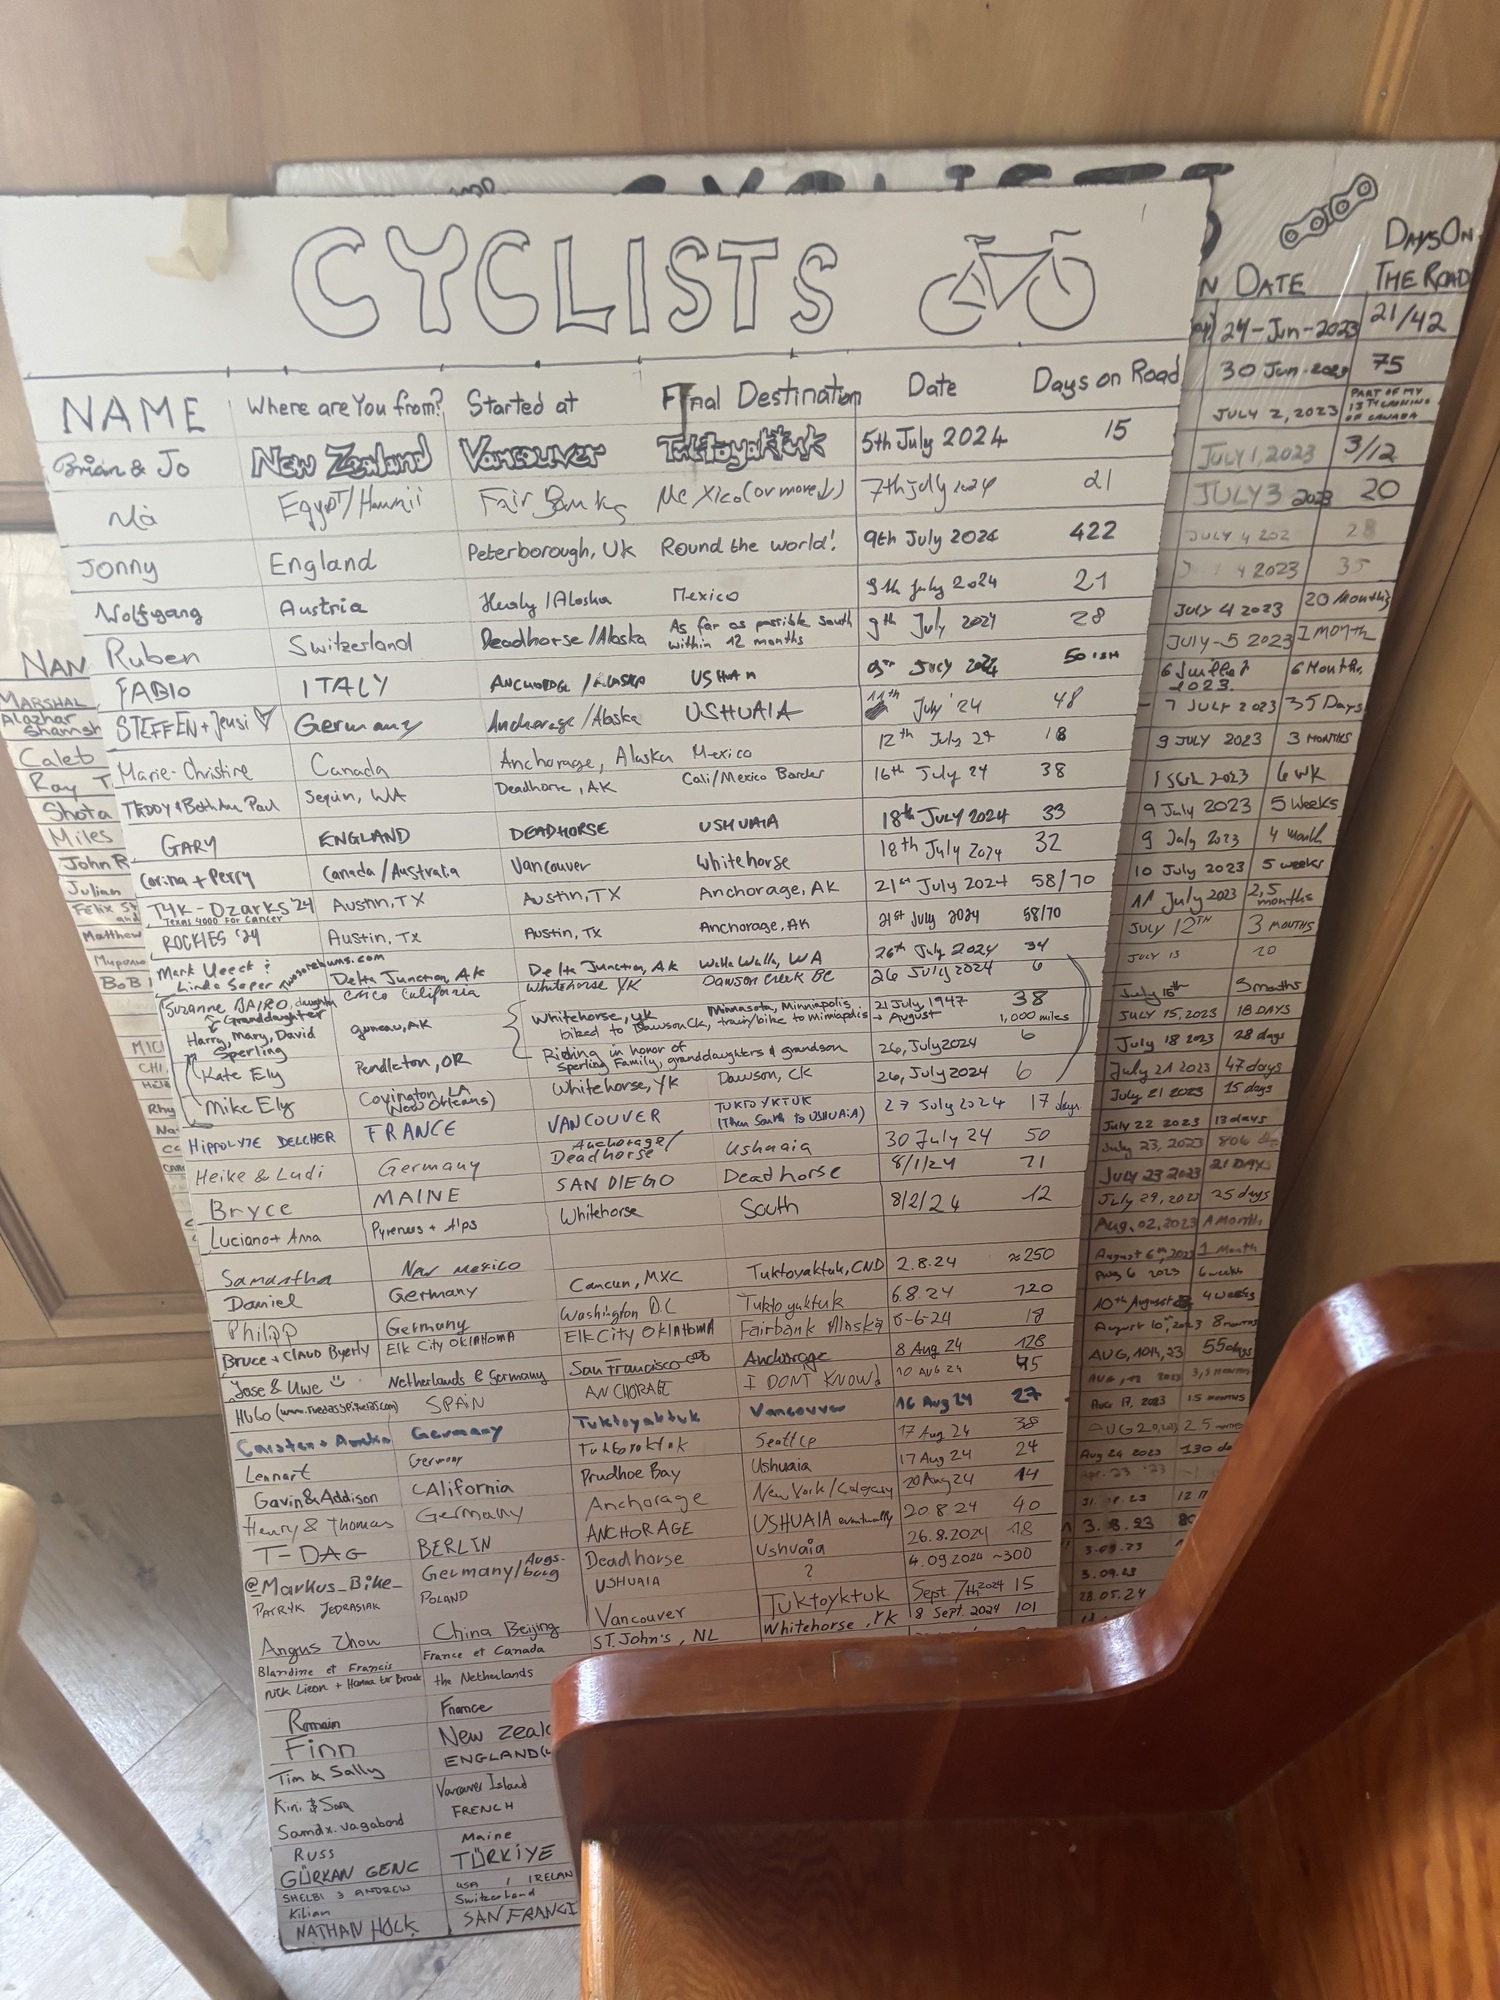 CYCLISTS
NAME Where are You from? Started at Final Destination Date Days on Road
Brian & Jo New Zealand Vancouver Tuktoyaktuk 5th July 2024 15
Egypt/Hawaii Fairbanks Mexico (or more↓) 7th July 2024 21
Jonny England Peterborough, UK Round the world! 9th July 2024 422
Wolfgang Austria /Alaska Mexico 9th July 2024 21
Ruben Switzerland Deadhorse/Alaska As far as possible south within 12 months 9th July 2024 28
FABIO ITALY ANCHORAGE /ALASKA July 2024 50 ISH
STEFFEN + Jensi Germany Anchorage/Alaska USHUAIA 11th July '24 48
Marie-Christine Canada Anchorage, Alaska Mexico 12th July 24 18
TEDDY & BethAnn Paul Sequin, WA Deadhorse, AK Cali/Mexico Border 16th July 24 38
GARY ENGLAND DEADHORSE USHUAIA 18th JULY 2024 33
Corina + Perry Canada/Australia Vancouver Whitehorse 18th July 2024 32
T4K - Ozarks '24 Austin, TX Austin, TX Anchorage, AK 21st July 2024 58/70
Texas 4000 For Cancer
ROCKIES '24 Austin, Tx Austin, TX Anchorage, AK 21st July 2024 58/70
Mark Ueeck & Delta Junction, AK Delta Junction, AK Walla Walla, WA 26th July 2024 34
Linda Soper
Suzanne BAIRO, daughter Chico California Whitehorse YK Dawson Creek BC 26 July 2024 6
Granddaughter
Harry, Mary, David Sperling Juneau, AK Whitehorse, YK Minnesota, Minneapolis 21 July, 1947 → August 38
biked to Dawson Ck, train/bike to Minneapolis 1,000 miles
Kate Ely Pendleton, OR Riding in honor of 26, July 2024 6
Sperling Family, granddaughters & grandson
Mike Ely Covington, LA (New Orleans) Whitehorse, YK Dawson, CK 26, July 2024 6
HIPPOLYTE DELCHER FRANCE VANCOUVER TUKTOYKTUK (Then South to USHUAIA) 27 July 2024 17 days
Heike & Ludi Germany Anchorage/Deadhorse Ushuaia 30 July 24 50
Bryce MAINE SAN DIEGO Deadhorse 8/1/24 71
Luciano + Ana Pyrenees + Alps Whitehorse South 8/2/24 12
Samantha New Mexico
Daniel Germany Cancun, MXC Tuktoyaktuk, CND 2.8.24 ≈250
Philipp Germany Washington DC Tuktoyaktuk 6.8.24 120
Bruce + CLAUD Byerly Elk City OKLAHOMA Elk City OKLAHOMA Fairbank Alaska 18
Jose & Uwe Netherlands & Germany San Francisco Anchorage 8 Aug 24 128
HUGO SPAIN ANCHORAGE I DON'T KNOW! 10 AUG 24 45
Carsten + Germany Tuktoyaktuk Vancouver 16 Aug 24 27
Lennart Germany Tuktoyaktuk Seattle 17 Aug 24 38
Gavin & Addison California Prudhoe Bay Ushuaia 17 Aug 24 24
Henry & Thomas Germany Anchorage New York/Calgary 20 Aug 24 14
T-DAG BERLIN ANCHORAGE USHUAIA eventually 20.8.24 40
@Markus_Bike_ Germany/Augsburg Deadhorse Ushuaia 26.8.2024 18
PATRYK JEDRASIAK POLAND USHUAIA ? 4.09.2024 ~300
Angus Zhou China Beijing Vancouver Tuktoyktuk Sept. 7th 2024 15
Blandine et Francis France et Canada ST. John's, NL Whitehorse, YK 8 Sept. 2024 101
Nick Lieon + the Netherlands
Romain France
Finn New Zeal
Tim & Sally ENGLAND
Kini & Sara Vancouver Island
Samdx.vagabond FRENCH
Russ Maine
GÜRKAN GENC TÜRKİYE
SHELBI & ANDREW USA / IRELAN
Kilian Switzerland
NATHAN HOCK SAN FRANCI
DAYS ON
N DATE THE ROAD
24-Jun-2023 21/42
30 Jun 2023 75
JULY 2, 2023 PART OF MY
OF CANADA
JULY 1, 2023 3/12
JULY 3 2023 20
JULY 4 202 28
4 2023 35
JULY 4 2023 20 Months
JULY-5 2023 1 MONTH
2023. 6 Months
7 JULY 2023 35 Days
9 JULY 2023 3 MONTHS
2023 6 WK
9 July 2023 5 Weeks
9 July 2023 4 month
10 July 2023 5 weeks
11 July 2023 2,5 months
JULY 12TH 3 MONTHS
JULY 13 20
July 15th 3 months
JULY 15, 2023 18 DAYS
July 18 2023 28 days
July 21 2023 47 days
July 21 2023 15 days
July 22 2023 13 days
July 23, 2023 806
JULY 23 2023 21 DAYS
July 29, 2023 25 days
Aug. 02, 2023 A month
August 6th, 2023 1 Month
Aug 6 2023 6 weeks
10th August 4 weeks
August 10th, 2023 8 months
AUG, 10th, 23 55 days
Aug 17, 2023 1.5 months
AUG 20, 2023 2.5
Aug 24 2023 130
3.8.23
3.09.23
3.09.23
28.05.24
NAN
MARSHAL
Alazhar
Shamsh
Caleb
Ray T
Shota
Miles
John R
Julian
Felix
and
Matthew
BoB